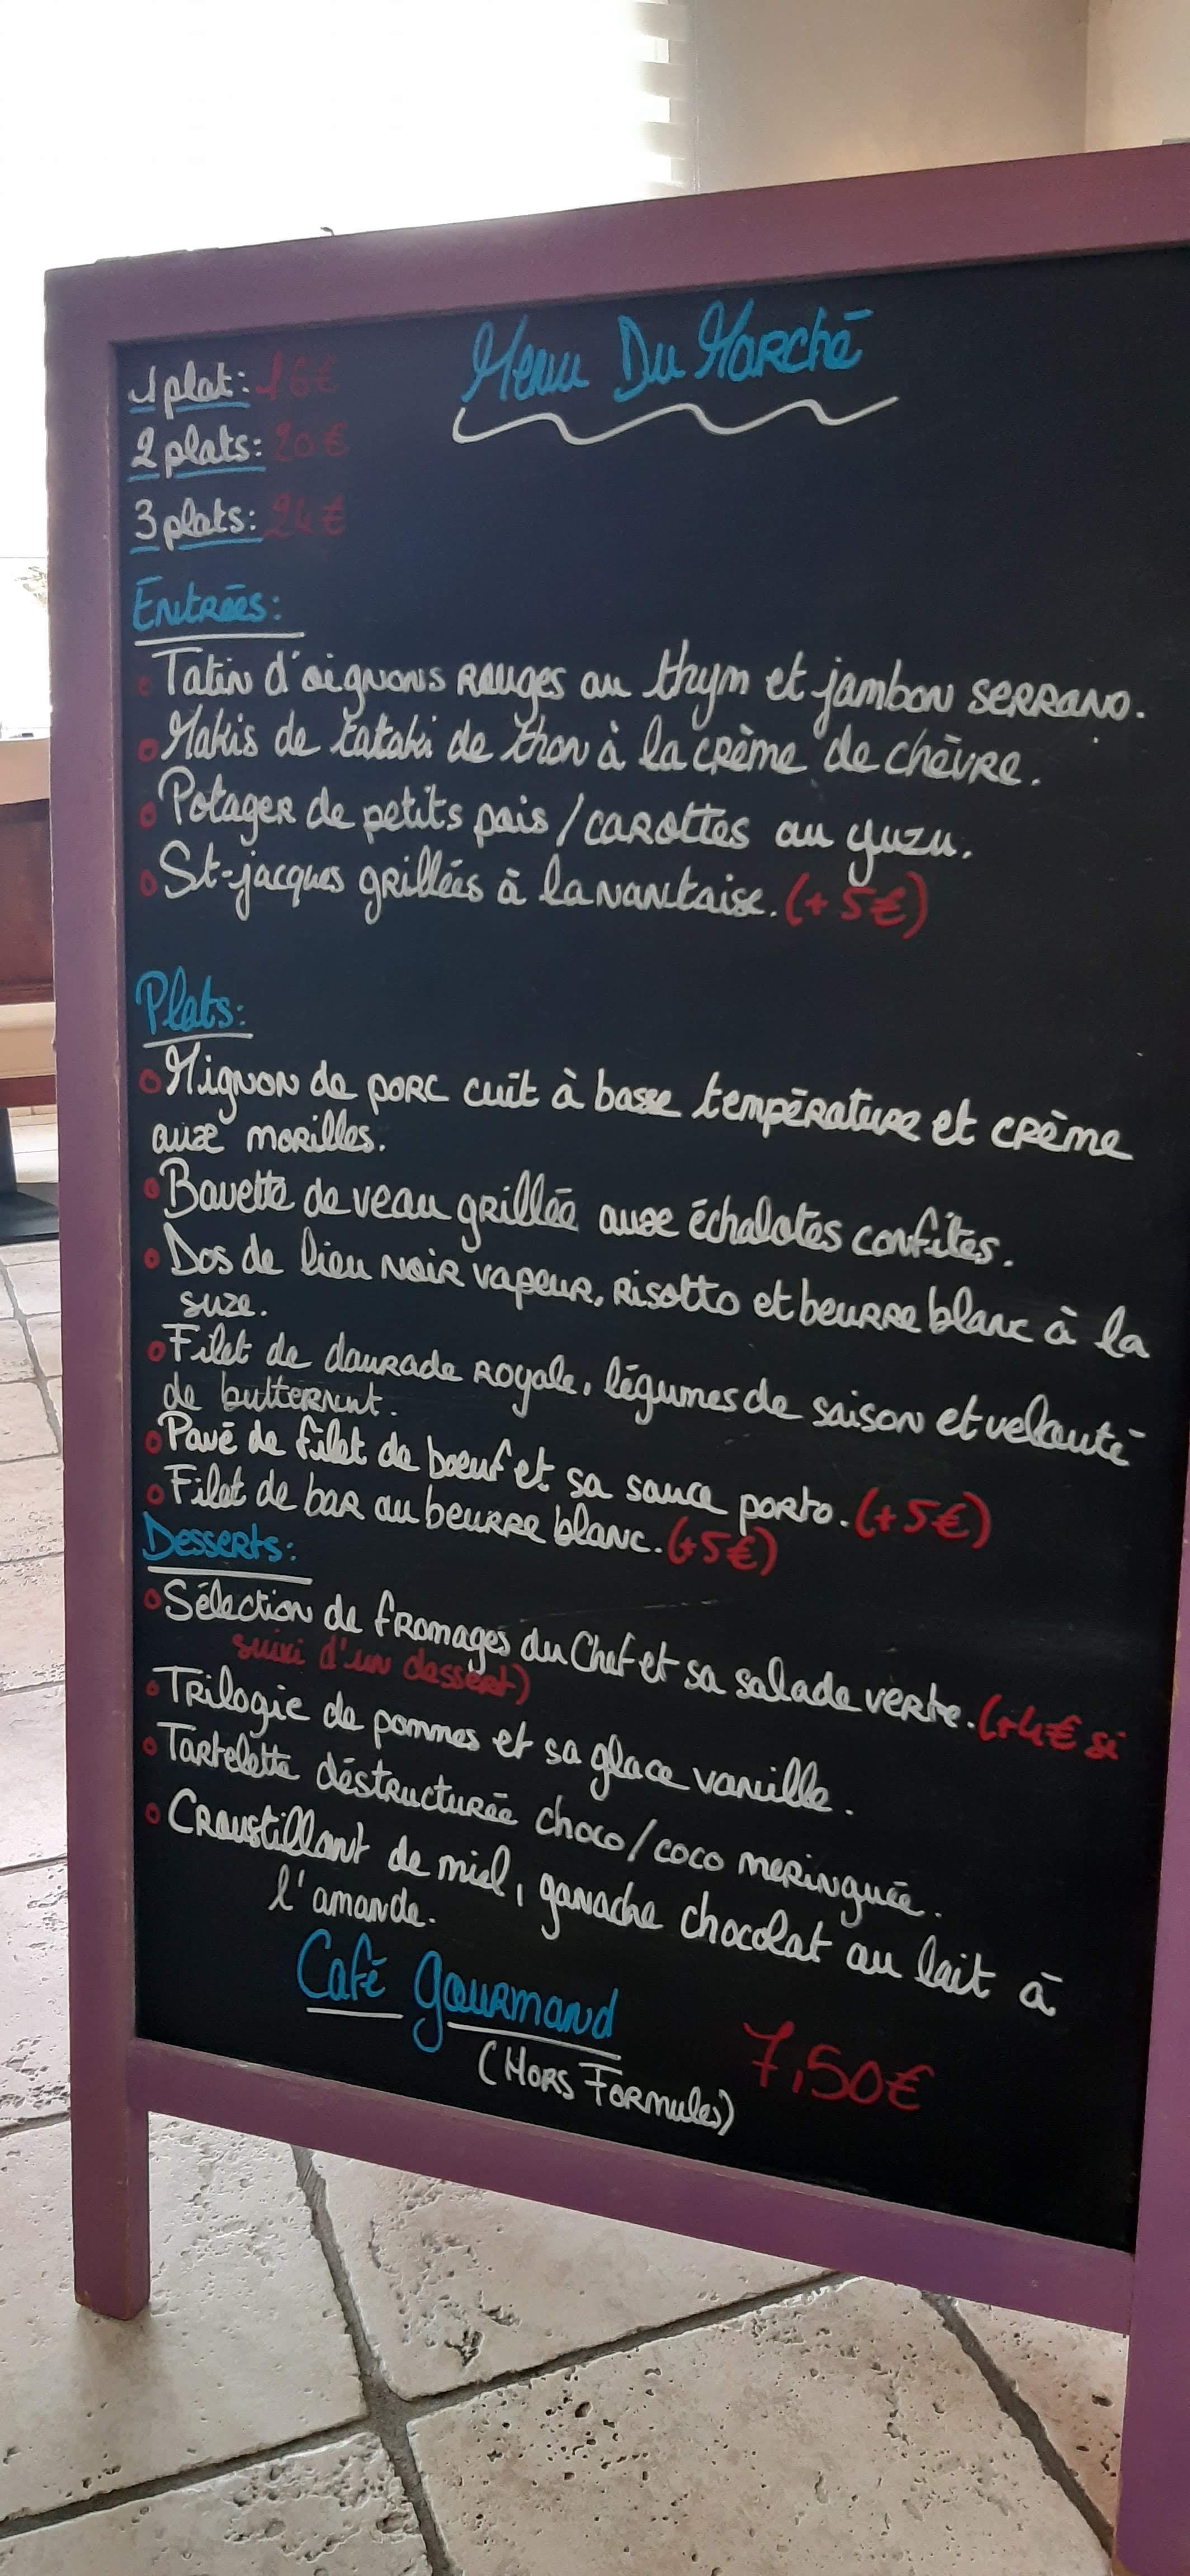 Menu Du Marché
1 plat: 16€
2 plats: 20€
3 plats: 24€
Entrées:
Tatin d'oignons rouges au thym et jambon serrano.
Makis de tataki de thon à la crème de chèvre.
Potager de petits pois / carottes au yuzu.
St-jacques grillées à la nantaise. (+ 5€)
Plats:
Mignon de porc cuit à basse température et crème
aux morilles.
Bavette de veau grillée aux échalotes confites.
Dos de lieu noir vapeur, risotto et beurre blanc à la
suze.
Filet de daurade royale, légumes de saison et velouté
de butternut.
Pavé de filet de boeuf et sa sauce porto. (+5€)
Filet de bar au beurre blanc. (+5€)
Desserts:
Sélection de fromages du Chef et sa salade verte. (+4€ si
suivi d'un dessert)
Trilogie de pommes et sa glace vanille.
Tartelette déstructurée choco/coco meringuée.
Croustillant de miel, ganache chocolat au lait à
l'amande.
Café gourmand 7,50€
(Hors Formules)